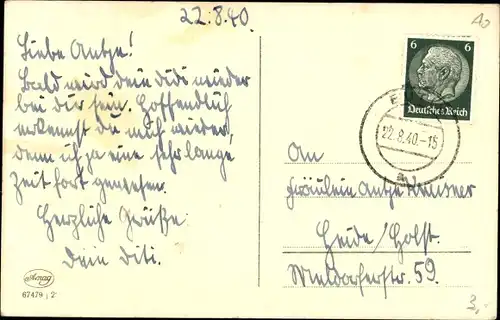 22.8.40.
Liebe Antje!
Bald wird dein didi wieder
bei dir sein. Hoffendlich
erkennst du mich wieder,
denn ich ja eine sehr lange
Zeit fort gewesen.
Herzliche Grüße
Dein Diti.
Amag
67479 / 2
6 6
Deutsches Reich
22.8.40.-15
An
Fräulein Antje
Heide/Holst.
Meldorferstr. 59.
3,-